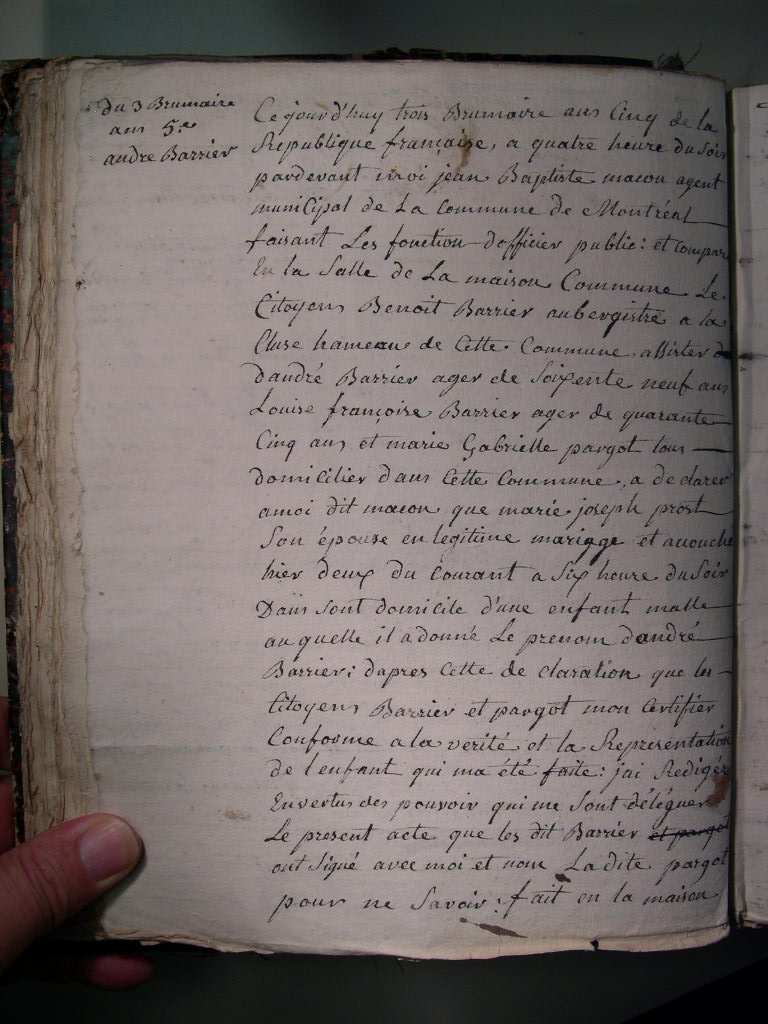 du 3 Brumaire
ans 5.e
andre Barrier
Ce jourd'huy trois Brumaire ans Cinq de la
Republique française, a quatre heure du Soir
pardevant moi jean Baptiste macon agent
municipal de La Commune de Montréal
faisant Les fonction d'officier public: et compar
En la Salle de La maison Commune Le
Citoyens Benoit Barrier aubergistre a la
Cluse hameau de Cette Commune, assister de
d'andré Barrier ager de Soixente neuf ans
Louise françoise Barrier ager de quarante
Cinq ans et marie Gabrielle pargot tous
domicilier dans Cette Commune, a declarer
a moi dit macon que marie joseph prost
Son épouse en legitime mariage et accouche
hier deux du Courant a Six heure du Soir
Dans sont domicile d'une enfant malle
au quelle il a donné Le prenom d'andré
Barrier; d'apres Cette declaration que les
Citoyens Barrier et pargot mon Certifier
Conforme a la verité et la Representation
de l'enfant qui ma été faite: jai Redigér
En vertus des pouvoir qui me Sont déléguer
Le present acte que les dit Barrier et pargot
ont Signé avec moi et nom La dite pargot
pour ne Savoir: fait en la maison